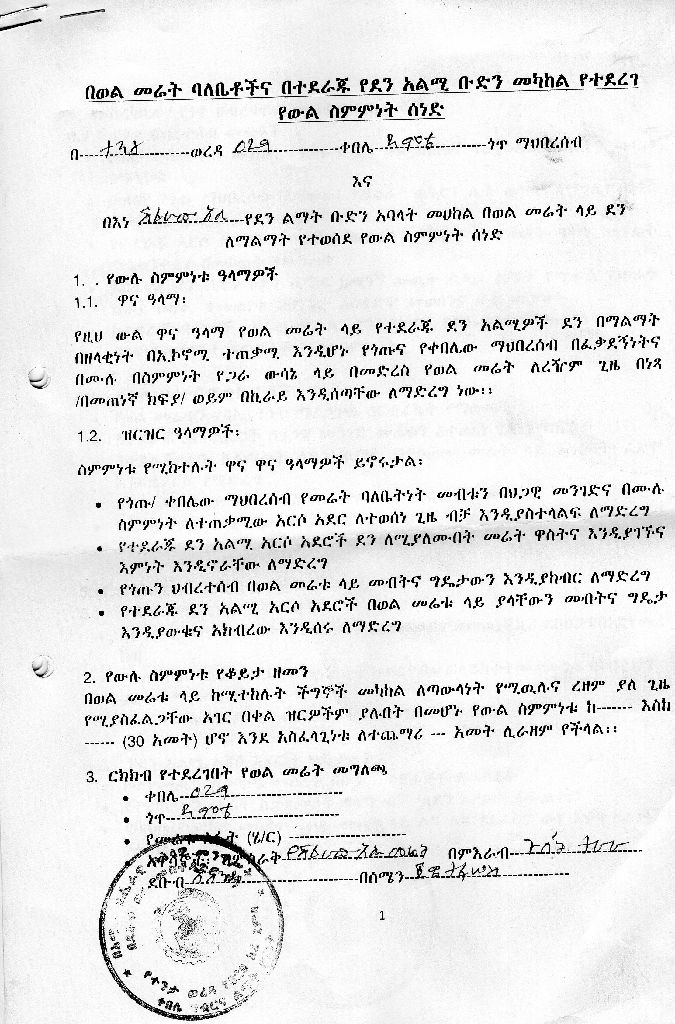 በወል መሬት ባለቤቶችና በተደራጁ የደን አልሚ ቡድን መካከል የተደረገ
የውል ስምምነት ሰነድ
በ---ተንታ---ወረዳ 029---ቀበሌ---ጎጥ ማህበረሰብ
እና
በእነ---የደን ልማት ቡድን አባላት መሀከል በወል መሬት ላይ ደን
ለማልማት የተወሰደ የውል ስምምነት ሰነድ
1. . የውሉ ስምምነቱ ዓላማዎች
1.1. ዋና ዓላማ፡
የዚህ ውል ዋና ዓላማ የወል መሬት ላይ የተደራጁ ደን አልሚዎች ደን በማልማት
በዘላቂነት በኢኮኖሚ ተጠቃሚ እንዲሆኑ የጎጡና የቀበሌው ማህበረሰብ በፈቃደኝነትና
በሙሉ በስምምነት የጋራ ውሳኔ ላይ በመድረስ የወል መሬት ለረዥም ጊዜ በነጻ
/በመጠነኛ ክፍያ/ ወይም በኪራይ እንዲሰጣቸው ለማድረግ ነው፡፡
1.2. ዝርዝር ዓላማዎች፡
ስምምነቱ የሚከተሉት ዋና ዋና ዓላማዎች ይኖሩታል፡
• የጎጡ/ ቀበሌው ማህበረሰብ የመሬት ባለቤትነት መብቱን በህጋዊ መንገድና በሙሉ
ስምምነት ለተጠቃሚው አርሶ አደር ለተወሰነ ጊዜ ብቻ እንዲያስተላልፍ ለማድረግ
• የተደራጁ ደን አልሚ አርሶ አደሮች ደን ለሚያለሙበት መሬት ዋስትና እንዲያገኙና
እምነት እንዲኖራቸው ለማድረግ
• የጎጡን ህብረተሰብ በወል መሬቱ ላይ መብትና ግዴታውን እንዲያከብር ለማድረግ
• የተደራጁ ደን አልሚ አርሶ አደሮች በወል መሬቱ ላይ ያላቸውን መብትና ግዴታ
እንዲያውቁና አክብረው እንዲሰሩ ለማድረግ
2. የውሉ ስምምነቱ የቆይታ ዘመን
በወል መሬቱ ላይ ከሚተከሉት ችግኞች መካከል ለጣውላነት የሚዉሉና ረዘም ያለ ጊዜ
የሚያስፈልጋቸው አገር በቀል ዝርዎችም ያሉበት በመሆኑ የውል ስምምነቱ ከ------- እስከ
------ (30 አመት) ሆኖ እንደ አስፈላጊነቱ ለተጨማሪ --- አመት ሊራዘም ይችላል፡፡
3. ርክክብ የተደረገበት የወል መሬት መግለጫ
• ቀበሌ 029---
• ጎጥ---
• የመሬቱ ስፋት (ሄ/ር)---
• አዋሳኞች፡ በምስራቅ---መሬት በምእራብ---ተራራ
ደቡብ---በሰሜን---
1